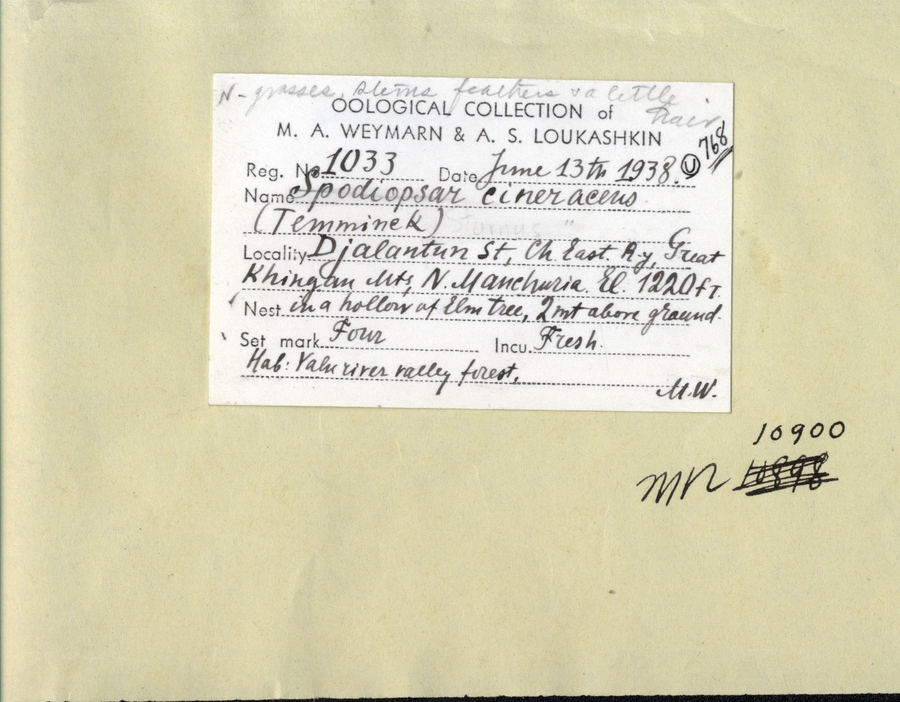 N - grasses, stems feathers & a little
hair
OOLOGICAL COLLECTION of
M. A. WEYMARN & A. S. LOUKASHKIN
768
Reg. No 1033 Date June 13th 1938. U
Name Spodiopsar cineraceus
(Temminck) Sturnus "
Locality Djalantun St, Ch. East. Ry, Great
Khingan Mts, N. Manchuria, El. 1220 ft
Nest in a hollow of Elm tree, 2 mt above ground.
Set mark Four Incu. Fresh.
Hab: Yalu river valley forest.
M.W.
10900